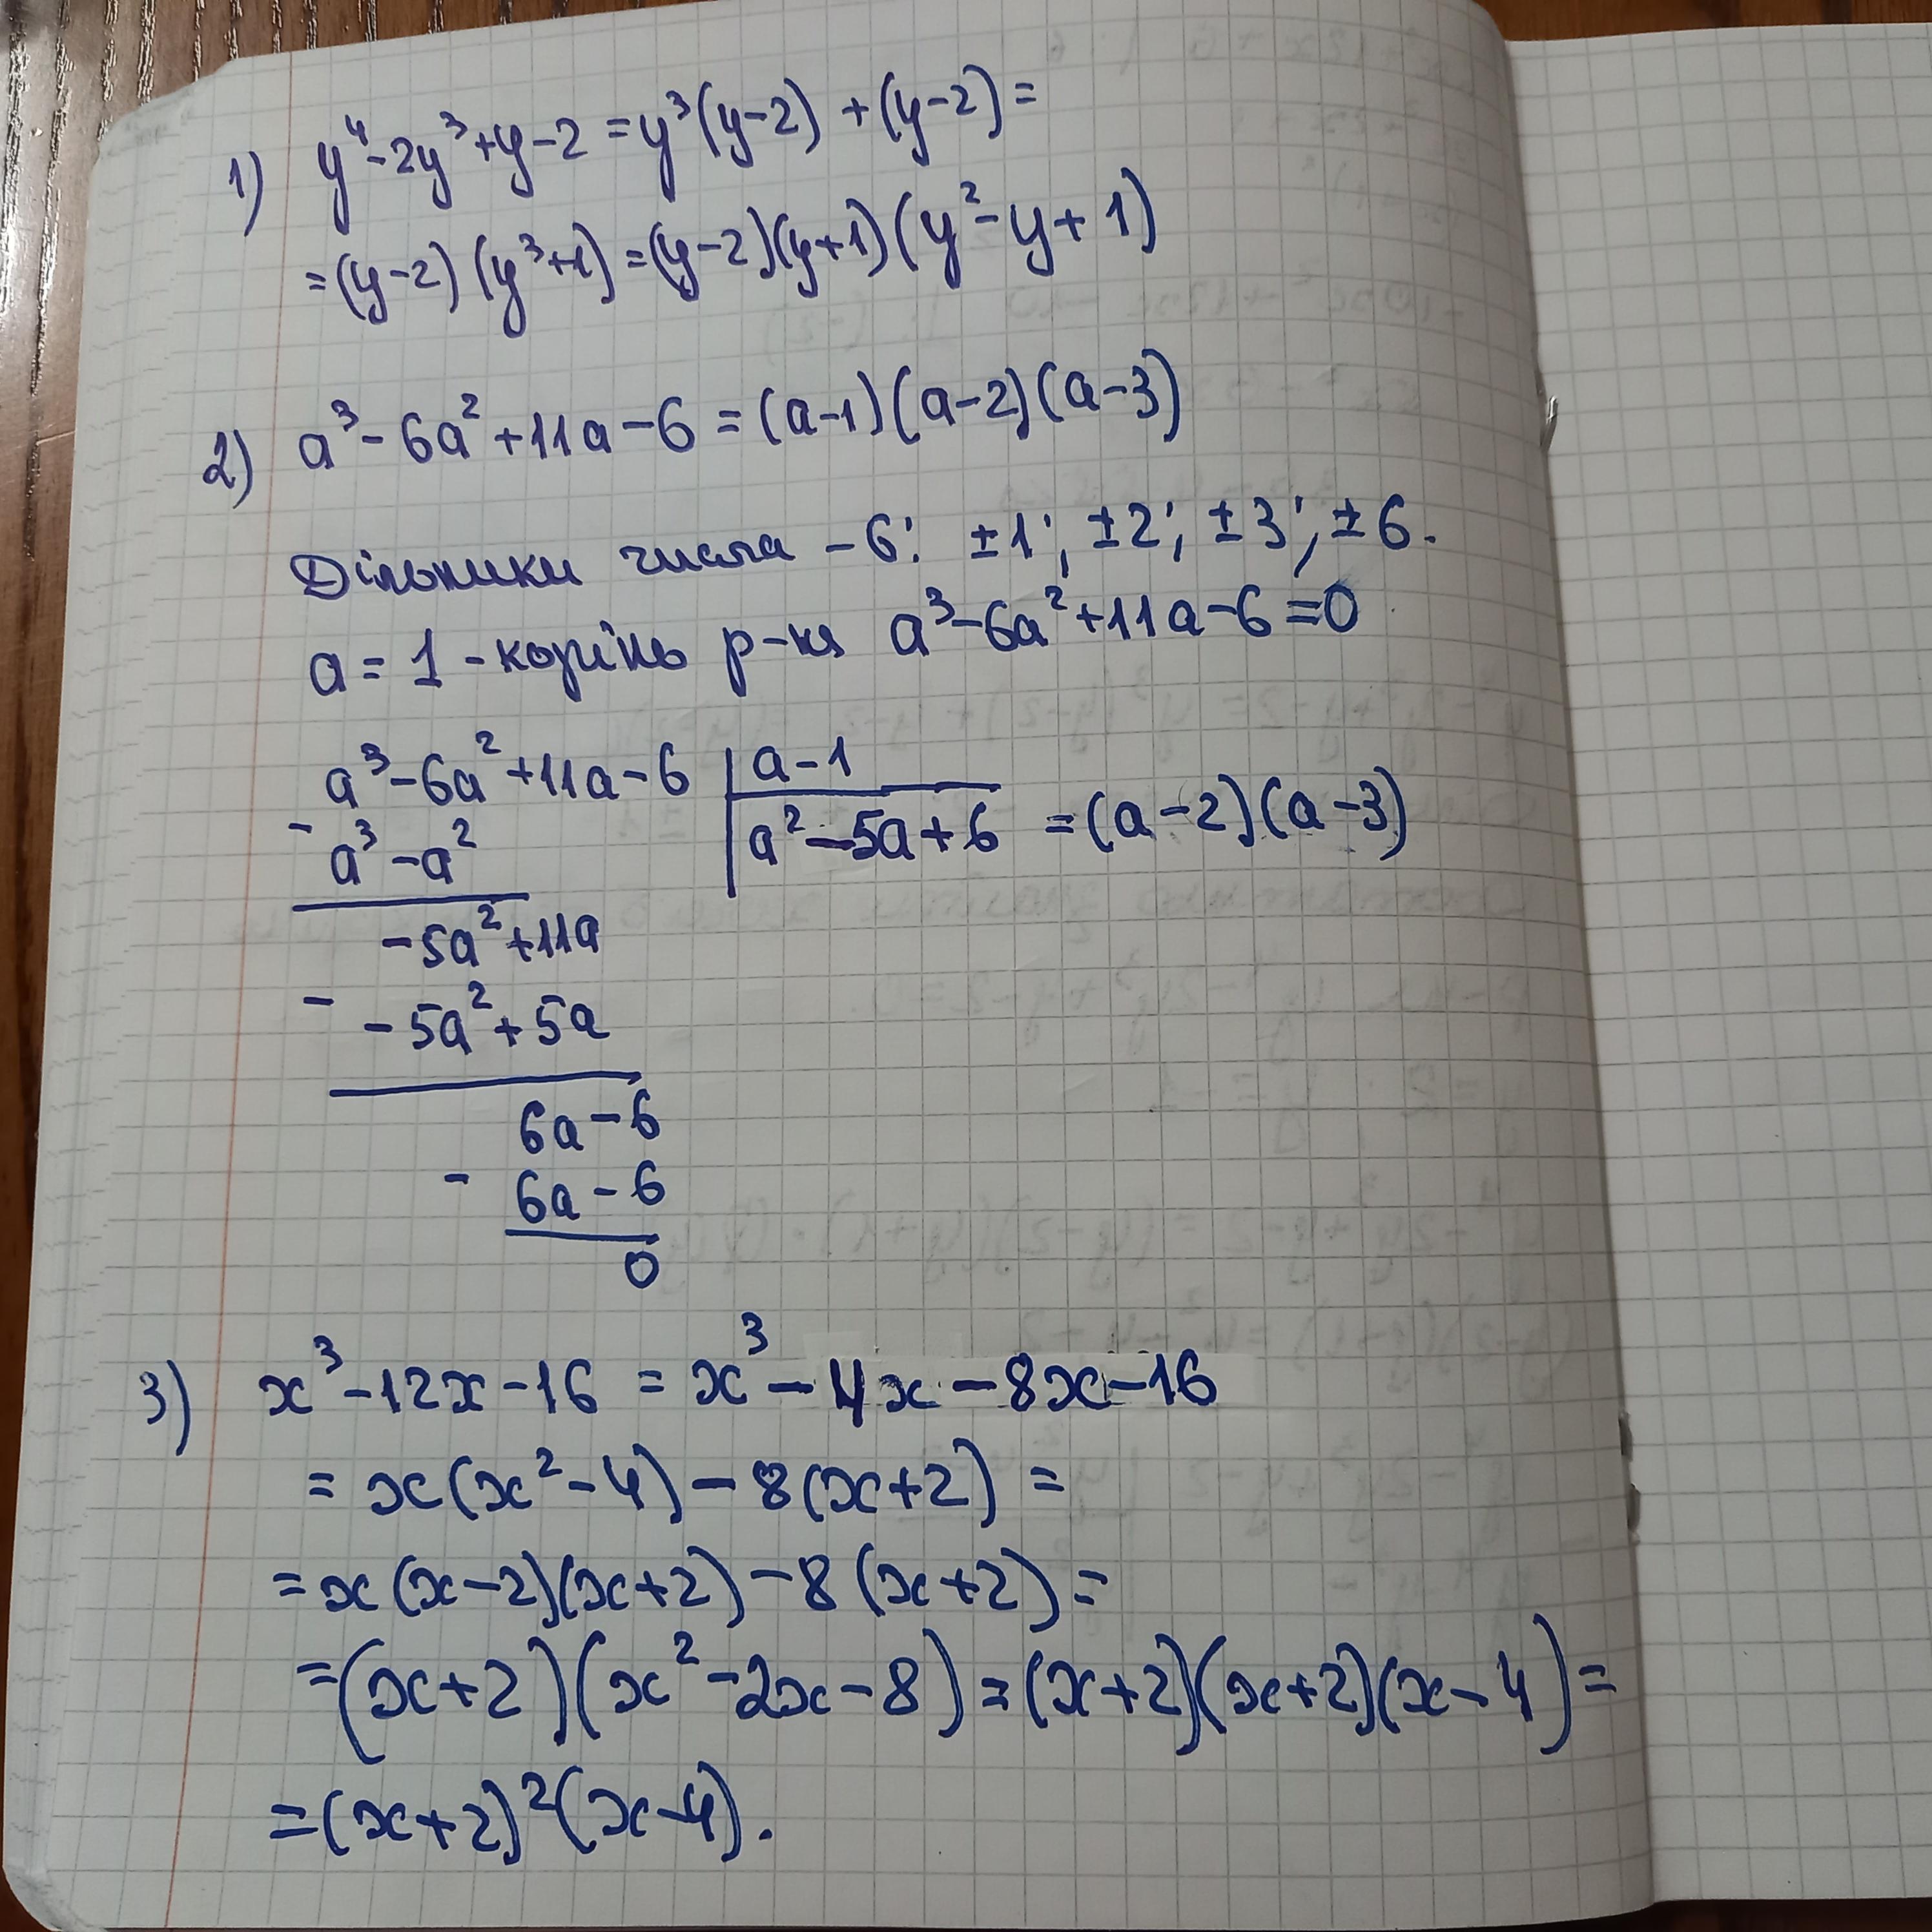 1) y⁴-2y³+y-2 = y³(y-2) + (y-2) =
= (y-2) (y³+1) = (y-2)(y+1)(y²-y+1)
2) a³-6a²+11a-6 = (a-1)(a-2)(a-3)
Дільники числа -6: ±1; ±2; ±3; ±6.
a = 1 - корінь р-ня a³-6a²+11a-6=0
a³-6a²+11a-6 | a-1
- a³-a² | a²-5a+6 = (a-2)(a-3)
-5a²+11a
- -5a²+5a
6a-6
- 6a-6
0
3) x³-12x-16 = x³-4x-8x-16
= x(x²-4)-8(x+2) =
= x(x-2)(x+2)-8(x+2) =
= (x+2)(x²-2x-8) = (x+2)(x+2)(x-4) =
= (x+2)²(x-4).